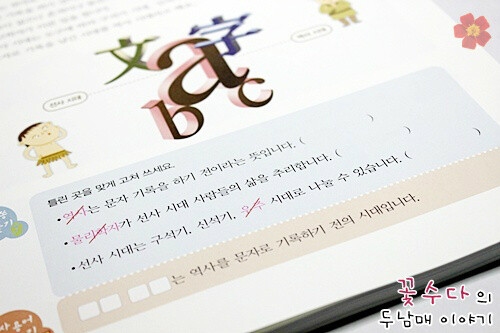 文字
a
b c
선사 시대
역사 시대
틀린 곳을 맞게 고쳐 쓰세요.
•역사는 문자 기록을 하기 전이라는 뜻입니다. ( )
•물리학자가 선사 시대 사람들의 삶을 추리합니다. ( )
•선사 시대는 구석기, 신석기, 우주 시대로 나눌 수 있습니다. ( )
는 역사를 문자로 기록하기 전의 시대입니다.
용어
꽃수다의
두남매 이야기